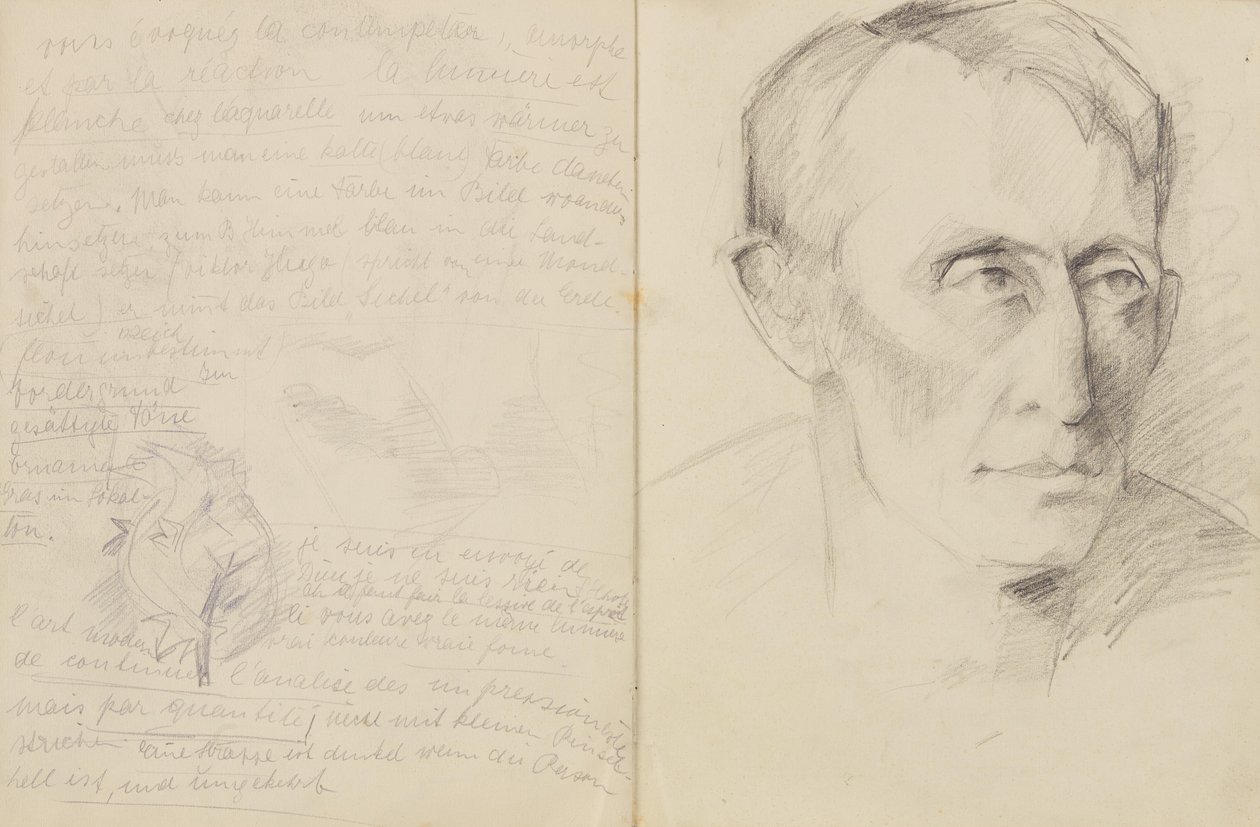 vous évoquéz la contempetäo, amorphe
et par la réaction la lumière est
planche chez laquarelle um etwas wärmer zu
gestalten muss man eine kalte (blaue) Farbe daneben
setzen. Man kann eine Farbe im Bild woanders
hinsetzen, zum B Himmel blau in die Land-
schaft setzen (viktor Hugo spricht von eine Mond-
sichel) er nimt das Bild "Sichel" von der Erde
weich
flou unbestimmt
Vordergrund
gesättigte Töne
Gras im Lokal-
ton.
je suis un envoyé de
Dieu je ne suis rien
on a peint pour la lessive de l'esprit
si vous avez le même lumière
vrai couleure vraie forme
l'art modern
de continuer l'analise des impressioniste
mais par quantité, nicht mit kleinen Pinsel-
strichen eine Strasse ist dunkel wenn die Person
hell ist, und umgekehrt